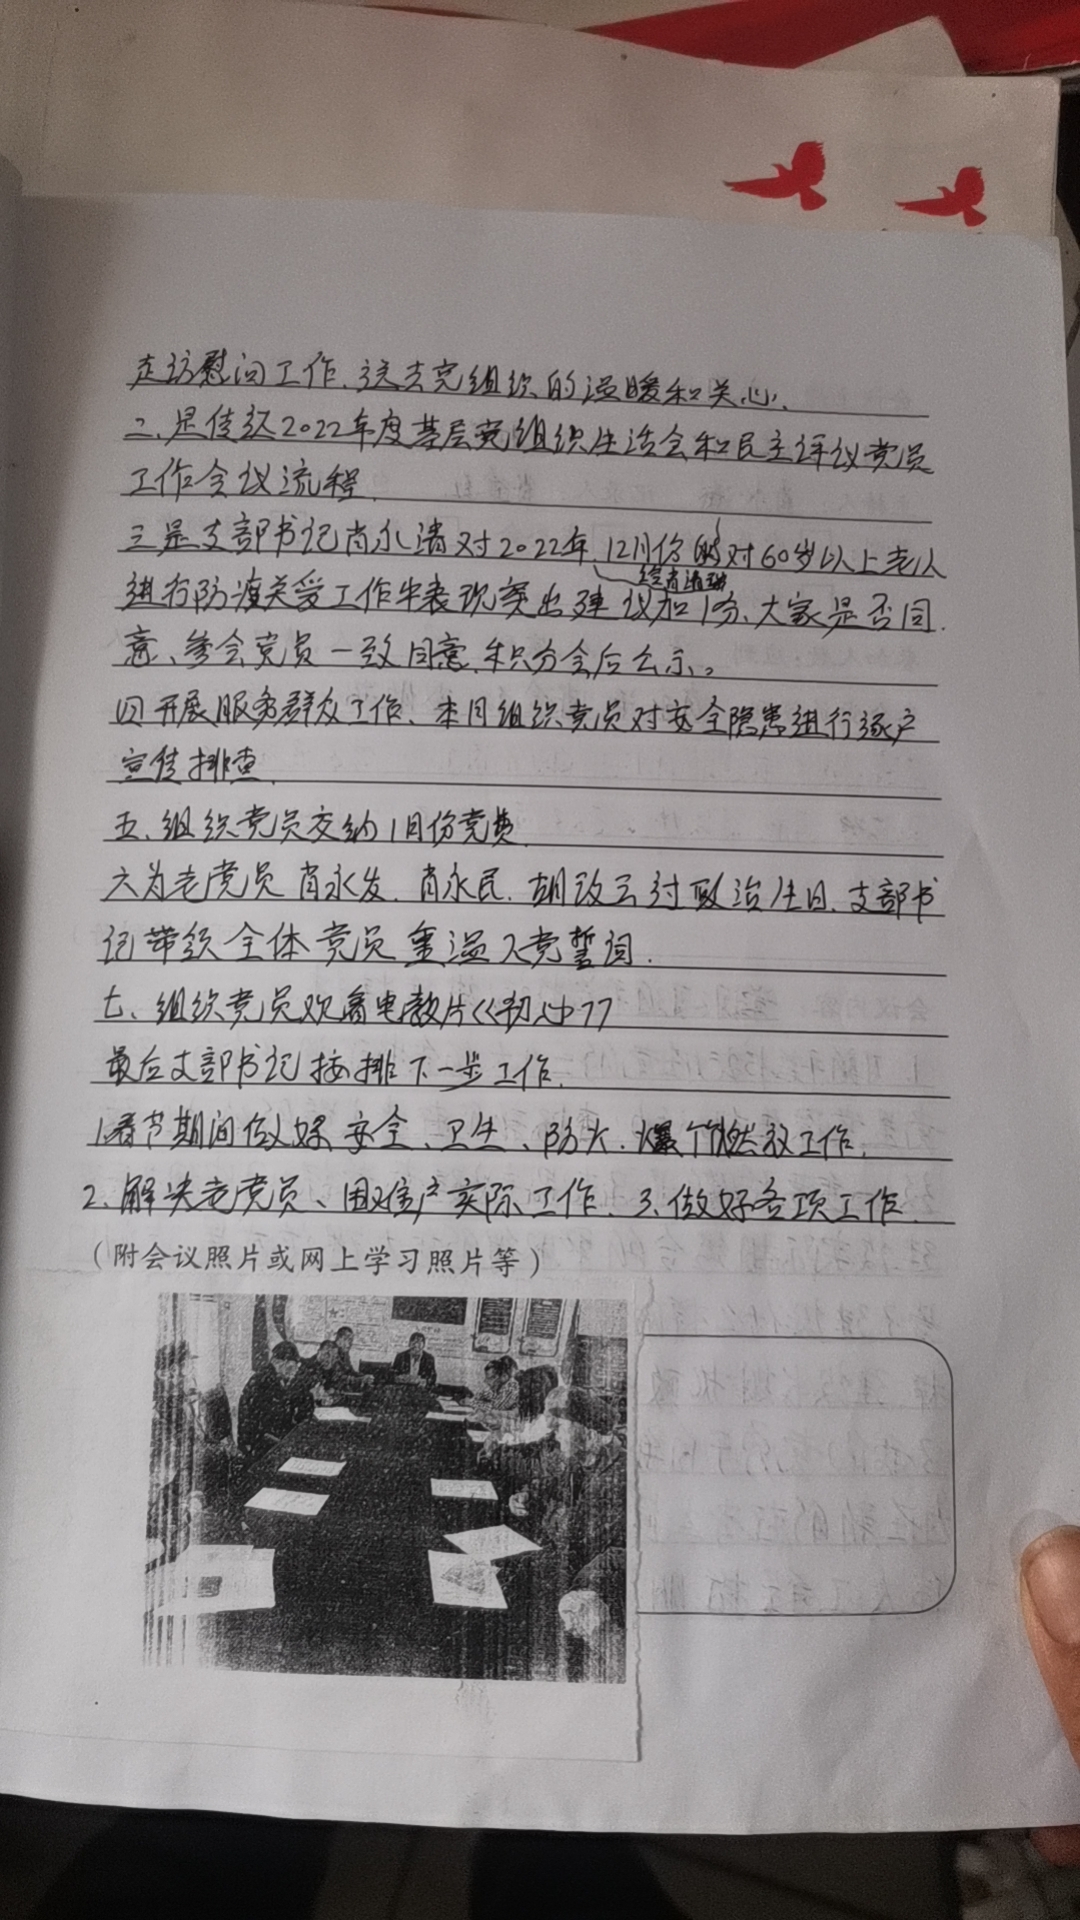 走访慰问工作、送去党组织的温暖和关心、
二、是传达2022年度基层党组织生活会和民主评议党员
工作会议流程、
三是支部书记肖永清对2022年、12月份的对60岁以上老人
给肖清瑞
进行防渡关爱工作中表现突出建议加1分、大家是否同
意、参会党员一致同意、积分会后公示。
四开展服务群众工作、本月组织党员对安全隐患进行逐户
宣传排查
五、组织党员交纳1月份党费
六为老党员肖永发、肖永民、胡改云过政治生日、支部书
记带领全体党员重温入党誓词.
七、组织党员观看电教片《初心》
最后支部书记按排下一步工作.
1.春节期间做好安全、卫生、防火、爆竹燃放工作.
2.解决老党员、困难户实际工作、3.做好各项工作.
（附会议照片或网上学习照片等）